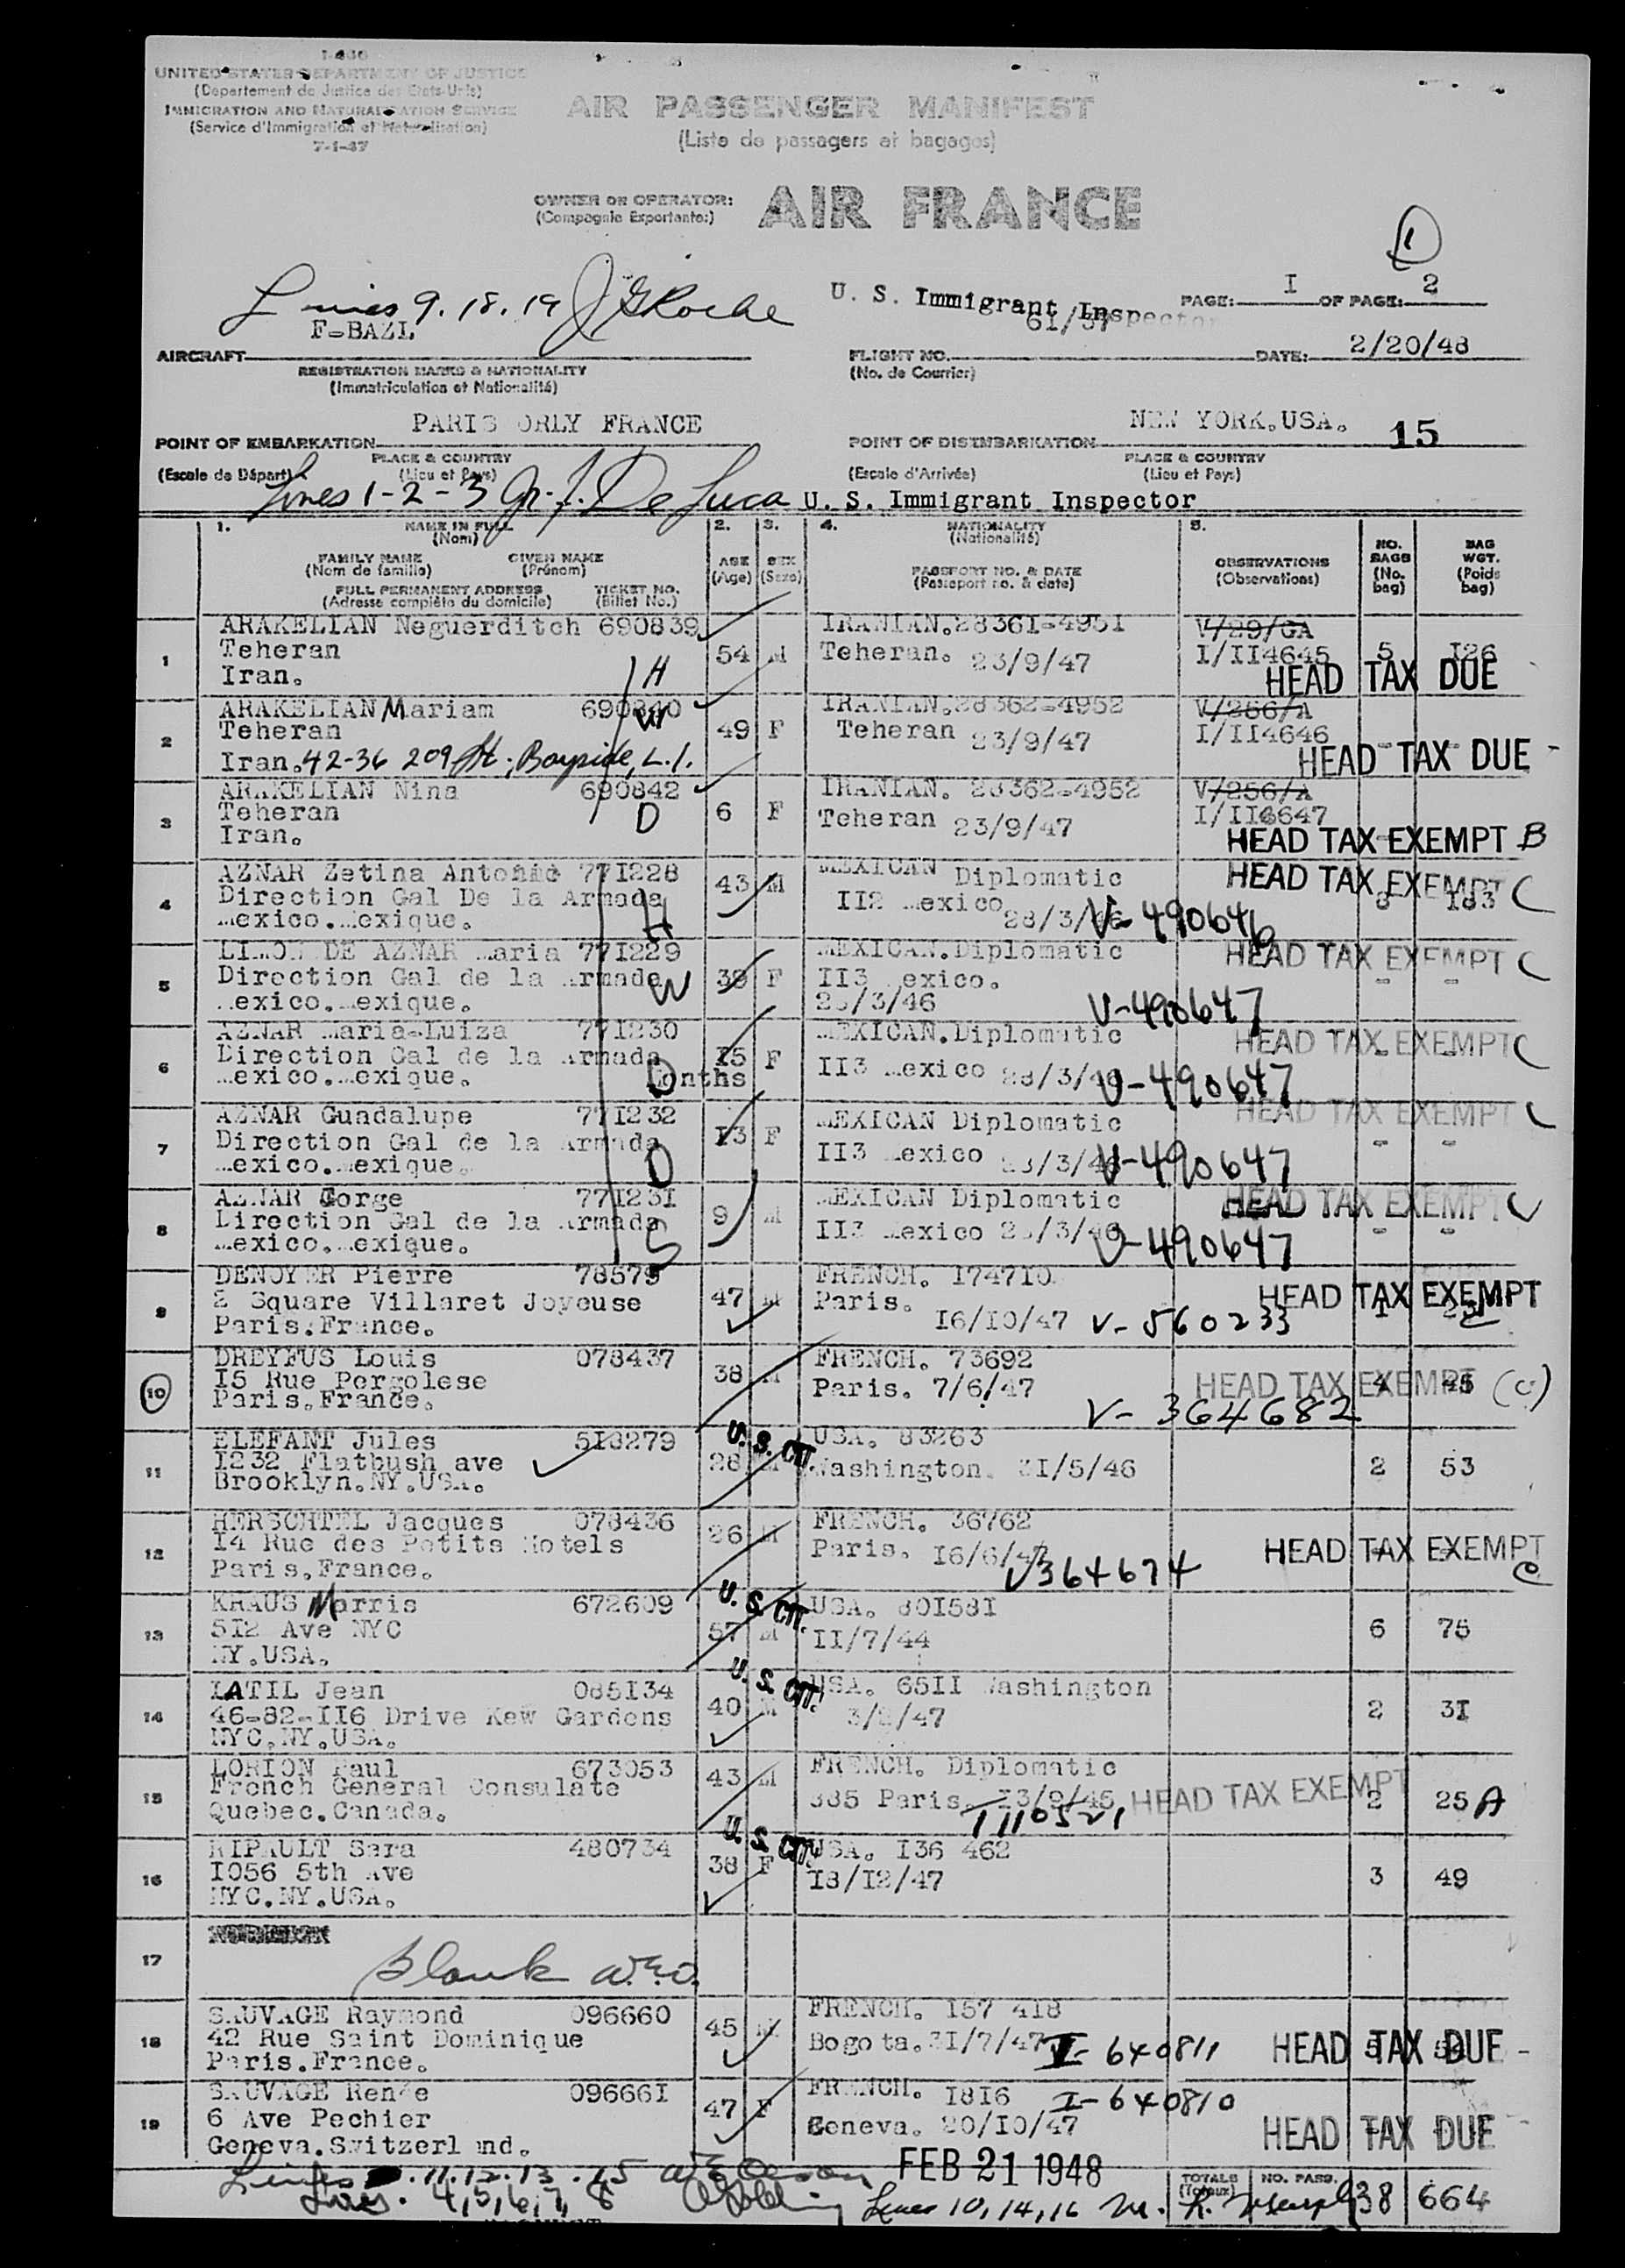 I-466
UNITED STATES DEPARTMENT OF JUSTICE
(Departement de Justice des Etats-Unis)
IMMIGRATION AND NATURALISATION SERVICE
(Service d'Immigration et Naturalisation)
7-1-47
AIR PASSENGER MANIFEST
(Liste de passagers et bagages)
OWNER OR OPERATOR:
(Compagnie Exportante:)
AIR FRANCE
1
Lines 9.18.19 J G Roche U. S. Immigrant Inspector
PAGE: I OF PAGE: 2
AIRCRAFT F-BAZL
REGISTRATION MARKS & NATIONALITY
(Immatriculation et Nationalité)
FLIGHT NO. 61/37
(No. de Courrier)
DATE: 2/20/48
POINT OF EMBARKATION PARIS ORLY FRANCE
PLACE & COUNTRY
(Escale de Départ) (Lieu et Pays)
POINT OF DISEMBARKATION NEW YORK.USA. 15
PLACE & COUNTRY
(Escale d'Arrivée) (Lieu et Pays)
Lines 1-2-3 J. De Luca U. S. Immigrant Inspector
1. NAME IN FULL
(Nom)
FAMILY NAME GIVEN NAME
(Nom de famille) (Prénom)
FULL PERMANENT ADDRESS TICKET NO.
(Adresse complète du domicile) (Billet No.)
2. AGE
(Age)
3. SEX
(Sexe)
4. NATIONALITY
(Nationalité)
PASSPORT NO. & DATE
(Passeport no. & date)
5. OBSERVATIONS
(Observations)
NO. BAGS
(No. bag)
BAG WGT.
(Poids bag)
1 ARAKELIAN Neguerditch 690839 54 M IRANIAN.28361-4951 V/29/GA 5 126
Teheran H Teheran. 23/9/47 I/II4645
Iran. HEAD TAX DUE
2 ARAKELIAN Mariam 690840 49 F IRANIAN.28362-4952 V/256/A
Teheran W Teheran 23/9/47 I/II4646
Iran. 42-36 209 St., Bayside, L.I. HEAD TAX DUE -
3 ARAKELIAN Nina 690842 6 F IRANIAN. 28362-4952 V/256/A
Teheran D Teheran 23/9/47 I/II4647
Iran. HEAD TAX EXEMPT B
4 AZNAR Zetina Antonio 77I228 43 M MEXICAN Diplomatic HEAD TAX EXEMPT C
Direction Gal De la Armada H II2 Mexico 8 183
Mexico.Mexique. 28/3/46 V-490646
5 LIMON DE AZNAR Maria 77I229 39 F MEXICAN.Diplomatic HEAD TAX EXEMPT C
Direction Gal de la Armada W II3 Mexico. - -
Mexico.Mexique. 28/3/46 V-490647
6 AZNAR Maria-Luiza 77I230 I5 F MEXICAN.Diplomatic HEAD TAX EXEMPT C
Direction Gal de la Armada D Months II3 Mexico 28/3/46 V-490647
Mexico.Mexique.
7 AZNAR Guadalupe 77I232 I3 F MEXICAN Diplomatic HEAD TAX EXEMPT C
Direction Gal de la Armada D II3 Mexico 28/3/46 V-490647 - -
Mexico.Mexique.
8 AZNAR Gorge 77I23I 9 M MEXICAN Diplomatic HEAD TAX EXEMPT C
Direction Gal de la Armada S II3 Mexico 28/3/46 V-490647 - -
Mexico.Mexique.
9 DENOYER Pierre 78579 47 M FRENCH. I74710 HEAD TAX EXEMPT
2 Square Villaret Joyeuse Paris. 1
Paris.France. I6/I0/47 V-560233
10 DREYFUS Louis 078437 38 M FRENCH. 73692 HEAD TAX EXEMPT (C)
I5 Rue Pergolese Paris. 7/6/47 4 45
Paris.France. V-364682
11 ELEFANT Jules 518279 28 M U.S. CIT. USA. 83263
I232 Flatbush ave Washington. 3I/5/46 2 53
Brooklyn.NY.USA.
12 HERSCHTEL Jacques 078436 26 M FRENCH. 36762
I4 Rue des Petits Hotels Paris. I6/6/47 HEAD TAX EXEMPT C
Paris.France. V364674
13 KRAUS Morris 672609 57 M U.S. CIT. USA. 80I58I
5I2 Ave NYC II/7/44 6 75
NY.USA.
14 LATIL Jean 085I34 40 M U.S. CIT. USA. 65II Washington
46-82-II6 Drive Kew Gardens 3/2/47 2 3I
NYC.NY.USA.
15 LORION Paul 673053 43 M FRENCH. Diplomatic
French General Consulate 385 Paris. 23/9/45 HEAD TAX EXEMPT 2 25 A
Quebec.Canada. T1110521
16 RIPAULT Sara 480734 38 F U.S. CIT. USA. I36 462
I056 5th Ave I8/I2/47 3 49
NYC.NY.USA.
17 Blank W.E.O.
18 SAUVAGE Raymond 096660 45 M FRENCH. I57 4I8
42 Rue Saint Dominique Bogota.3I/7/47 I-640811 HEAD TAX DUE -
Paris.France.
19 SAUVAGE Renée 09666I 47 F FRENCH. I8I6 I-640810
6 Ave Pechier Geneva. 20/I0/47 HEAD TAX DUE
Geneva.Switzerland.
Lines 11.12.13.15 W E Olson FEB 21 1948
Lines. 4,5,6,7,8
Lines 10,14,16 M. R.
TOTALS (Totaux) NO. PASS. 38 664